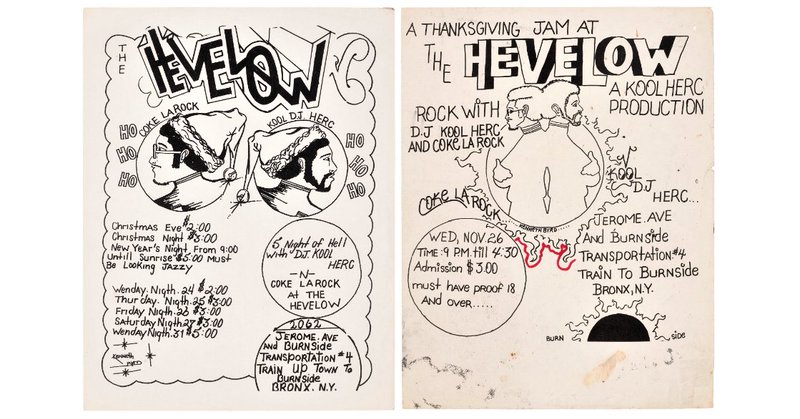 THE
HEVELOW
COKE LA ROCK
KOOL D.J. HERC
HO
HO
HO
HO
HO
HO
Christmas Eve $2:00
Christmas Night $3:00
New Year's Night From 9:00
Untill Sunrise $5:00 Must
Be Looking Jazzy
Wenday. Nigth. 24 $2:00
Thurday. Nigth 25 $3:00
Friday Nigth 26 $3:00
Saturday Nigth 27 $3:00
Wenday Nigth. 31 $5:00
5 Night of Hell
With D.J. KOOL
HERC
-N-
COKE LA ROCK
AT THE
HEVELOW
2062
JEROME. AVE
AND BURNSIDE
TRANSPORTATION #4
TRAIN UP TOWN TO
BURNSIDE
BRONX. N.Y.
A THANKSGIVING JAM AT
THE
HEVELOW
A KOOL HERC
PRODUCTION
ROCK WITH
D.J KOOL HERC
AND COKE LA ROCK
KOOL
DJ
HERC...
COKE LA ROCK
KENNETH BYRD
WED, NOV. 26
TIME: 9 P.M. till 4:30
Admission $3.00
must have proof 18
AND over.....
JEROME. AVE
AND BURNSIDE
TRANSPORTATION: #4
TRAIN TO BURNSIDE
BRONX, N.Y.
BURN
SIDE